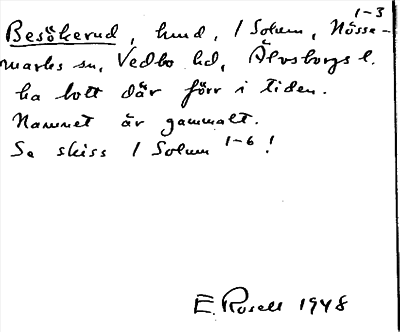 Besökerud, hmd, / Solum 1-3, Nösse-
marks sn, Vedbo hd, Älvsborgs l.
ha bott där förr i tiden.
Namnet är gammalt.
Se skiss / Solum 1-6!
E. Rosell 1948